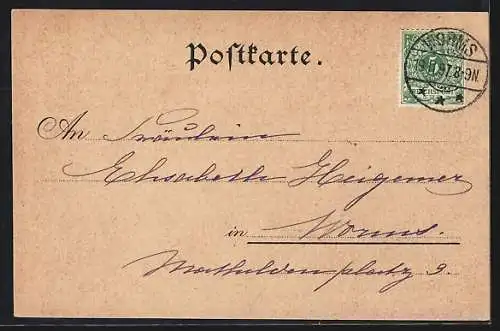 Postkarte.
WORMS
5
8-9N.
An Fräulein
Elisabeth Heigemer
in Worms.
Mathildenplatz 3.